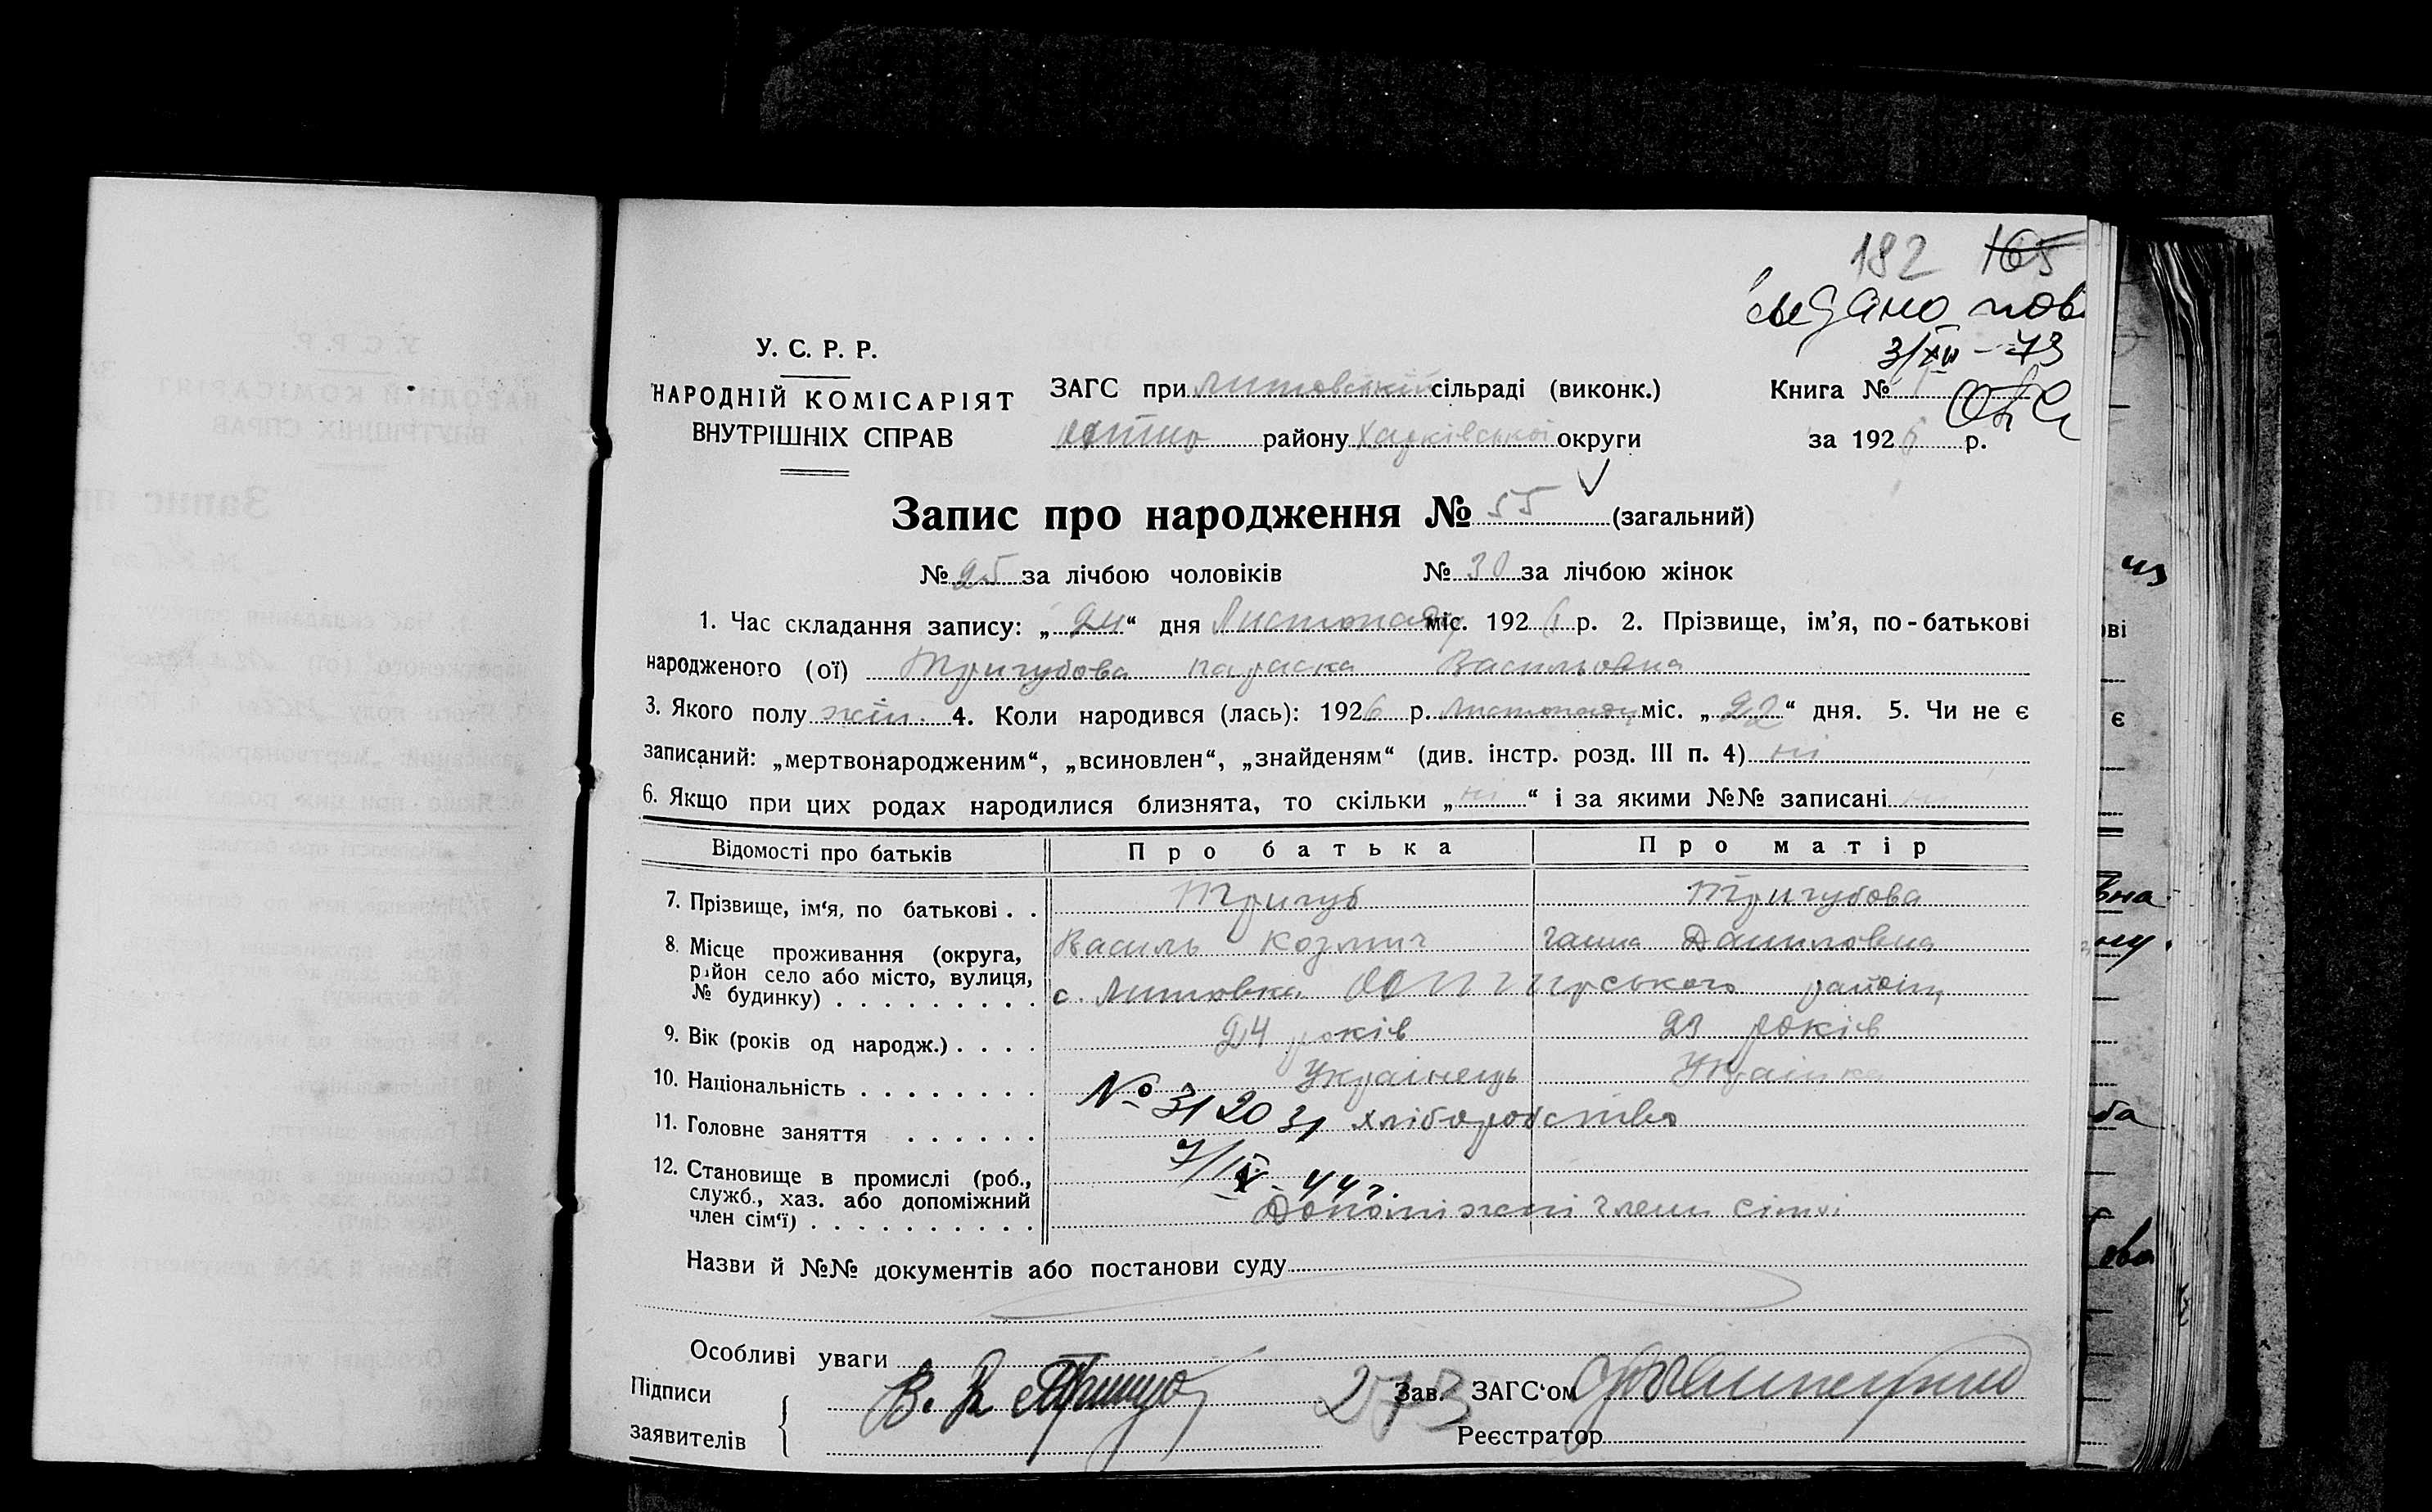 182 165
видано пов.
3/XII-73
У. С. Р. Р.
НАРОДНІЙ КОМІСАРІЯТ
ВНУТРІШНІХ СПРАВ
ЗАГС при Литовській сільраді (виконк.)
району Харківської округи
Книга №
за 1926 р.
Запис про народження № 55 (загальний)
№ 25 за лічбою чоловіків № 30 за лічбою жінок
1. Час складання запису: „24“ дня Листопаду міс. 1926 р. 2. Прізвище, ім'я, по-батькові
народженого (ої) Тригубова Параска Васильовна
3. Якого полу жін. 4. Коли народився (лась): 1926 р. Листопаду міс. „22“ дня. 5. Чи не є
записаний: „мертвонародженим“, „всиновлен“, „знайденям“ (див. інстр. розд. III п. 4) ні
6. Якщо при цих родах народилися близнята, то скільки „ні“ і за якими №№ записані ні
Відомості про батьків Про батька Про матір
7. Прізвище, ім'я, по батькові . . Тригуб Тригубова
Василь Козмич Ганна Даниловна
8. Місце проживання (округа,
район село або місто, вулиця,
№ будинку) . . . . . . . . . с. Литовка району
9. Вік (років од народж.) . . . . 24 років 23 років
10. Національність . . . . . . . . Українець Українка
№ 312031
11. Головне заняття . . . . . . хліборобство
7/IX-44 г.
12. Становище в промислі (роб.,
служб., хаз. або допоміжний
член сім'ї) . . . . . . . . . . Допоміжні члени сімї
Назви й №№ документів або постанови суду
Особливі уваги
Підписи
заявителів
В. К. Тригуб
273
Зав. ЗАГС'ом
Реєстратор